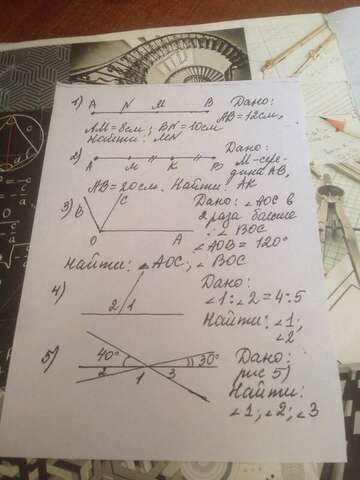 1) A N M B Дано:
AB = 12см,
AM = 8см; BN = 10см
Найти: MN
2) A M K B Дано:
M - сере-
дина AB,
AB = 20см. Найти: AK
3) B C Дано: ∠AOC в
2 раза больше
∠BOC
O A ∠AOB = 120°
Найти: ∠AOC; ∠BOC
4) Дано:
∠1 : ∠2 = 4 : 5
2 1 Найти: ∠1;
∠2
5) 40° 30° Дано:
2 1 3 рис 5)
Найти:
∠1; ∠2; ∠3